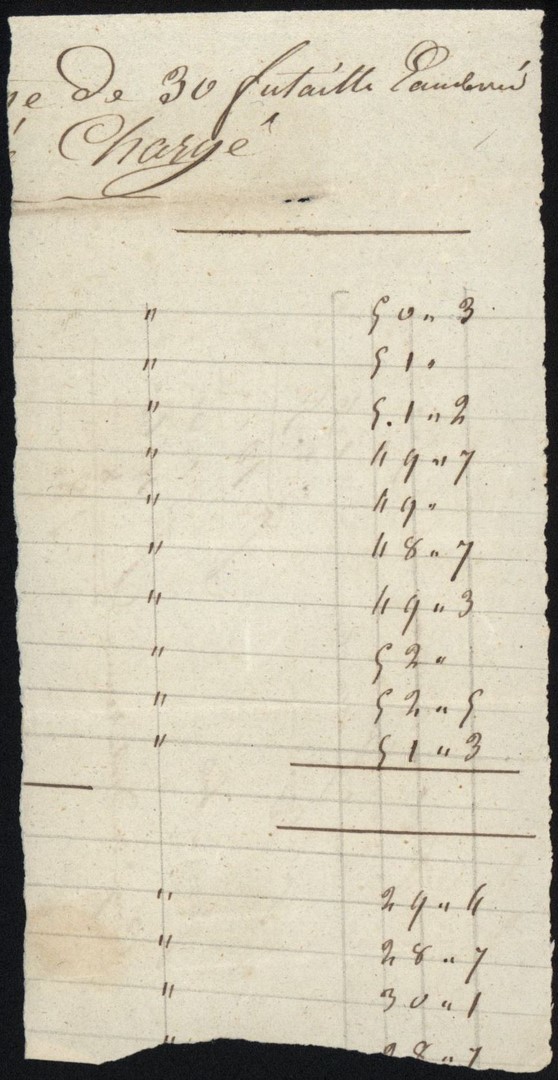 de 30 futaille
Chargé
" 50 " 3
" 51 "
" 51 " 2
" 49 " 7
" 49 "
" 48 " 7
" 49 " 3
" 52 "
" 52 " 5
" 51 " 3
" 29 " 4
" 28 " 7
" 30 " 1
" 28 " 7